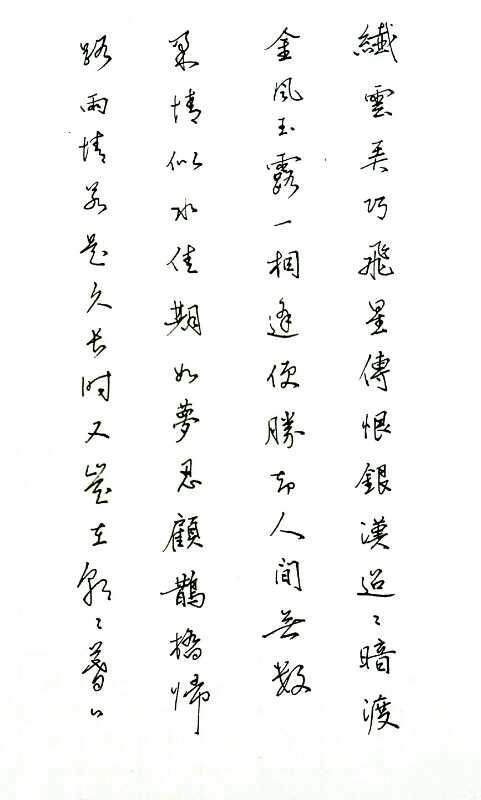 纖雲弄巧飛星傳恨銀漢迢〻暗渡
金風玉露一相逢便勝却人间無数
柔情似水佳期如夢忍顧鵲橋歸
路兩情若是久长时又豈在朝〻暮〻